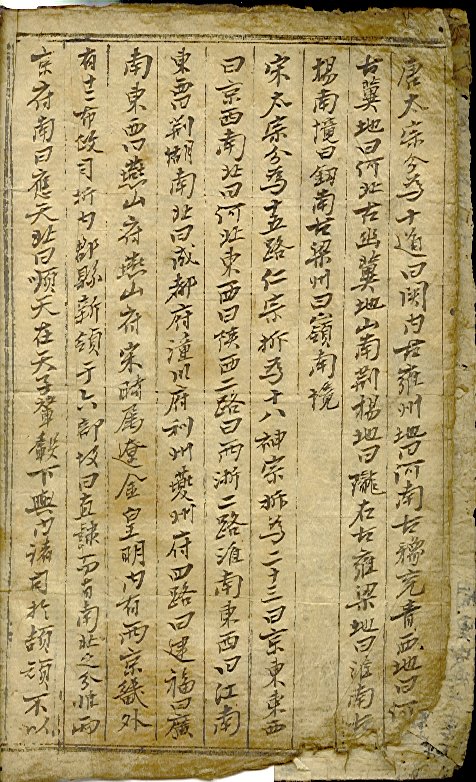 唐太宗分為十道曰関內古雍州地曰河南古豫兗青地曰河
古冀地曰河北古幽冀地山南荊楊地曰隴右古雍梁地曰淮南古
楊南境曰劒南古梁州曰嶺南境
宋太宗分為十五路仁宗拆為十八神宗拆為二十三曰京東東西
曰京西南北曰河北東西曰陝西二路曰兩淅二路淮南東西曰江南
東西曰荊湖南北曰成都府潼川府利州夔州府四路曰建福曰廣
南東西曰燕山府燕山府宋時属遼金皇明內有兩京畿外
有十二布政司折內郡縣新領于六部故曰直隷而有南北之分惟兩
京府南曰應天北曰順天在天子輦轂下與內諸司於頡頏不以